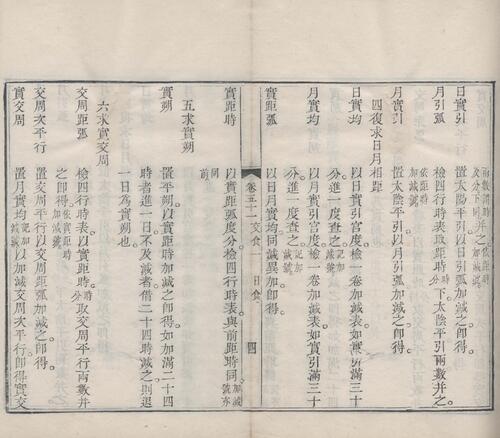 日實引　檢四行時表以實距時時分下太陽平引兩數併之依距時加減號
置太陽平引以日引弧加減之即得
月引弧　檢四行時表取距時時分下太陰平引兩數并之依距時加減號
月實引　置太陰平引以月引弧加減之即得
四復求日月相距
日實均　以日實引宮度檢一卷加減表如
分進一度查之記加減號
月實均　以月實引宮度檢一卷加減表如實引滿三十
分進一度查之記加減號
實距弧　以日月實均同減異加即得
卷五之二　交食一　日食　四
實距時　以實距弧度分檢四行時表與前距時同加減號亦同前
五求實朔
實朔　置平朔以實距時加減之即得如加滿二十四
時者進一日不及減者借二十四時減之則退
一日為實朔也
六求實交周
交周距弧　檢四行時表以實距時時分取交周平行兩數并
之即得依實距時加減號
交周次平行　置交周平行以交周距弧加減之即得
實交周　置月實均記加減號以加減交周次平行即得實交